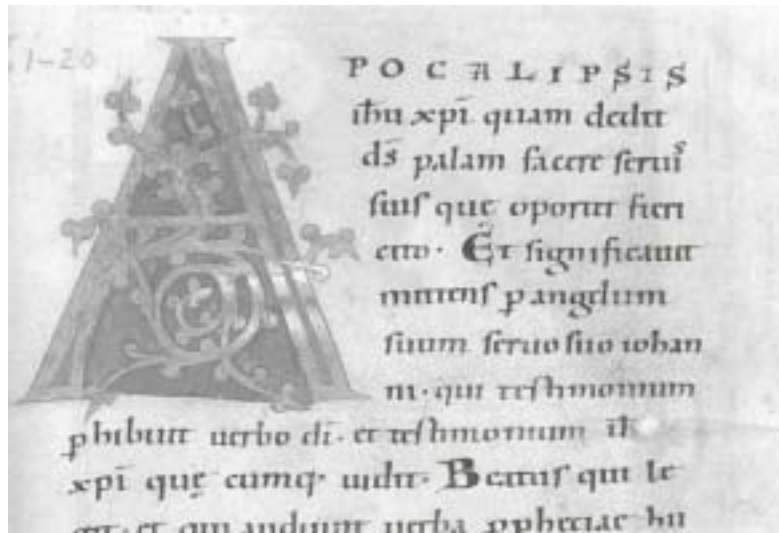 1-20
APOCALIPSIS
ih̄u xpī quam dedit
d̄s palam facere seruis
suis quę oportet fieri
cito. Et significauit
mittens ꝑ angelum
suum seruo suo iohan
ni. qui testimonium
ꝑhibuit uerbo dī. et testimonium ih̄
xpī quę cumq; uidit. Beatus qui le
git. et qui audiunt uerba ꝓphetiae hu